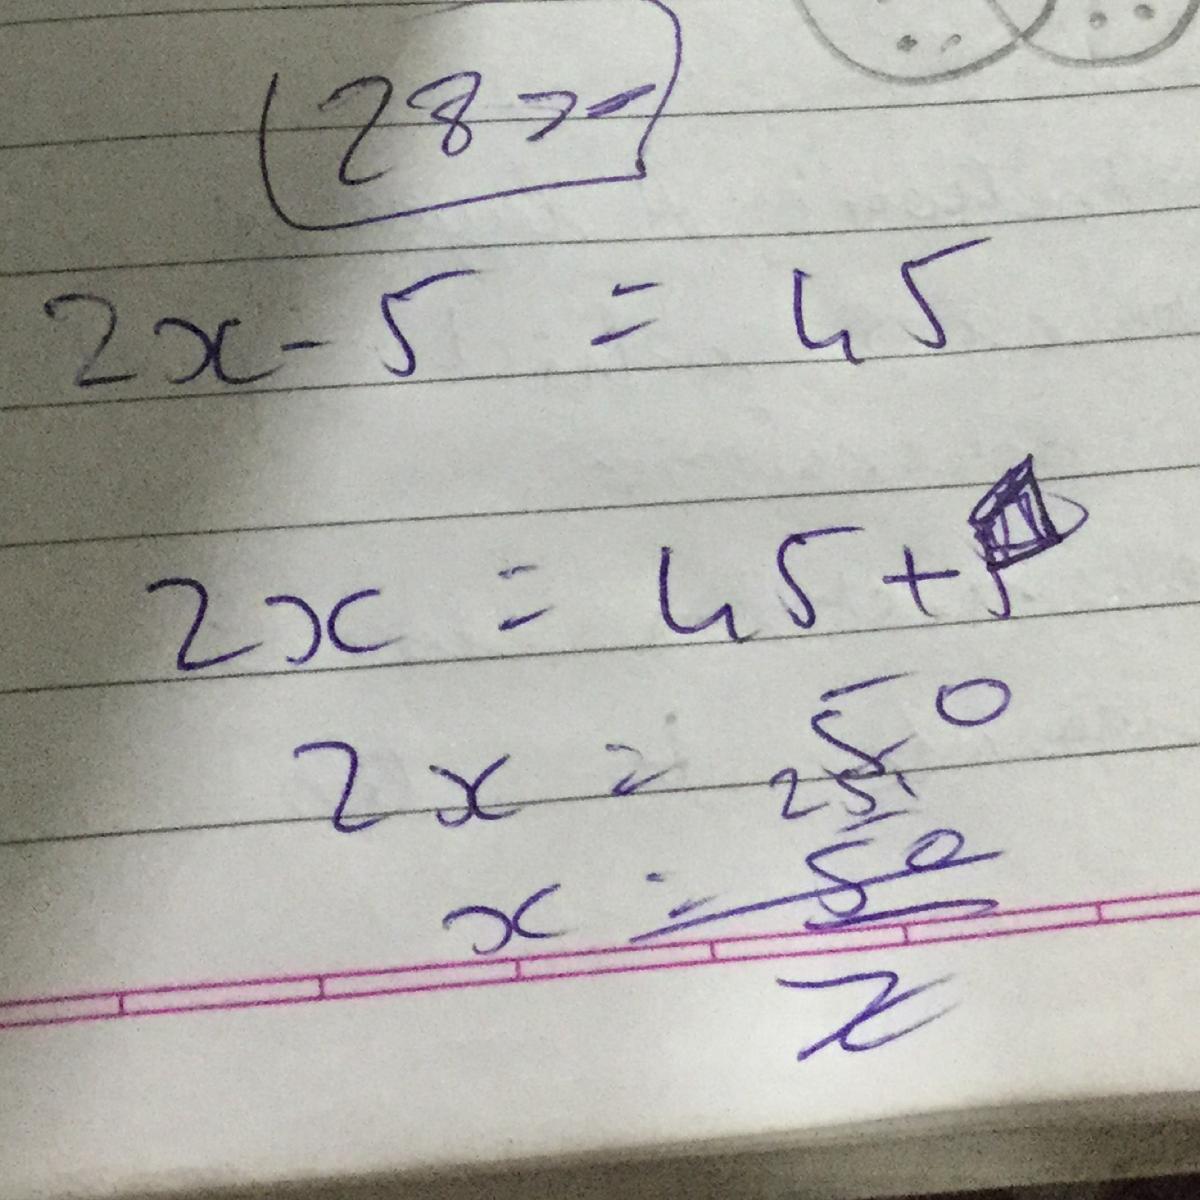 2x - 5 = 45
2x = 45 + 5
2x = 50
25
x = 50
2